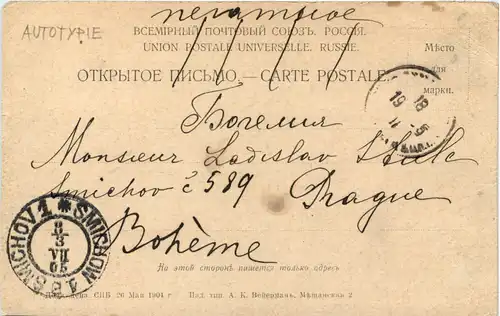 печатное
AUTOTYPIE
ВСЕМІРНЫЙ ПОЧТОВЫЙ СОЮЗЪ. РОССІЯ.
UNION POSTALE UNIVERSELLE. RUSSIE.
Мѣсто
для
марки.
ОТКРЫТОЕ ПИСЬМО.—CARTE POSTALE.
18
19
Богемия
Monsieur Ladislav
Smichov č 589 Prague
Bohème
SMICHOV 1 * SMICHOW 1
На этой сторонѣ пишется только адресъ
СПБ 26 Мая 1904 г. А. К. Вейерманъ, Мѣщанская 2